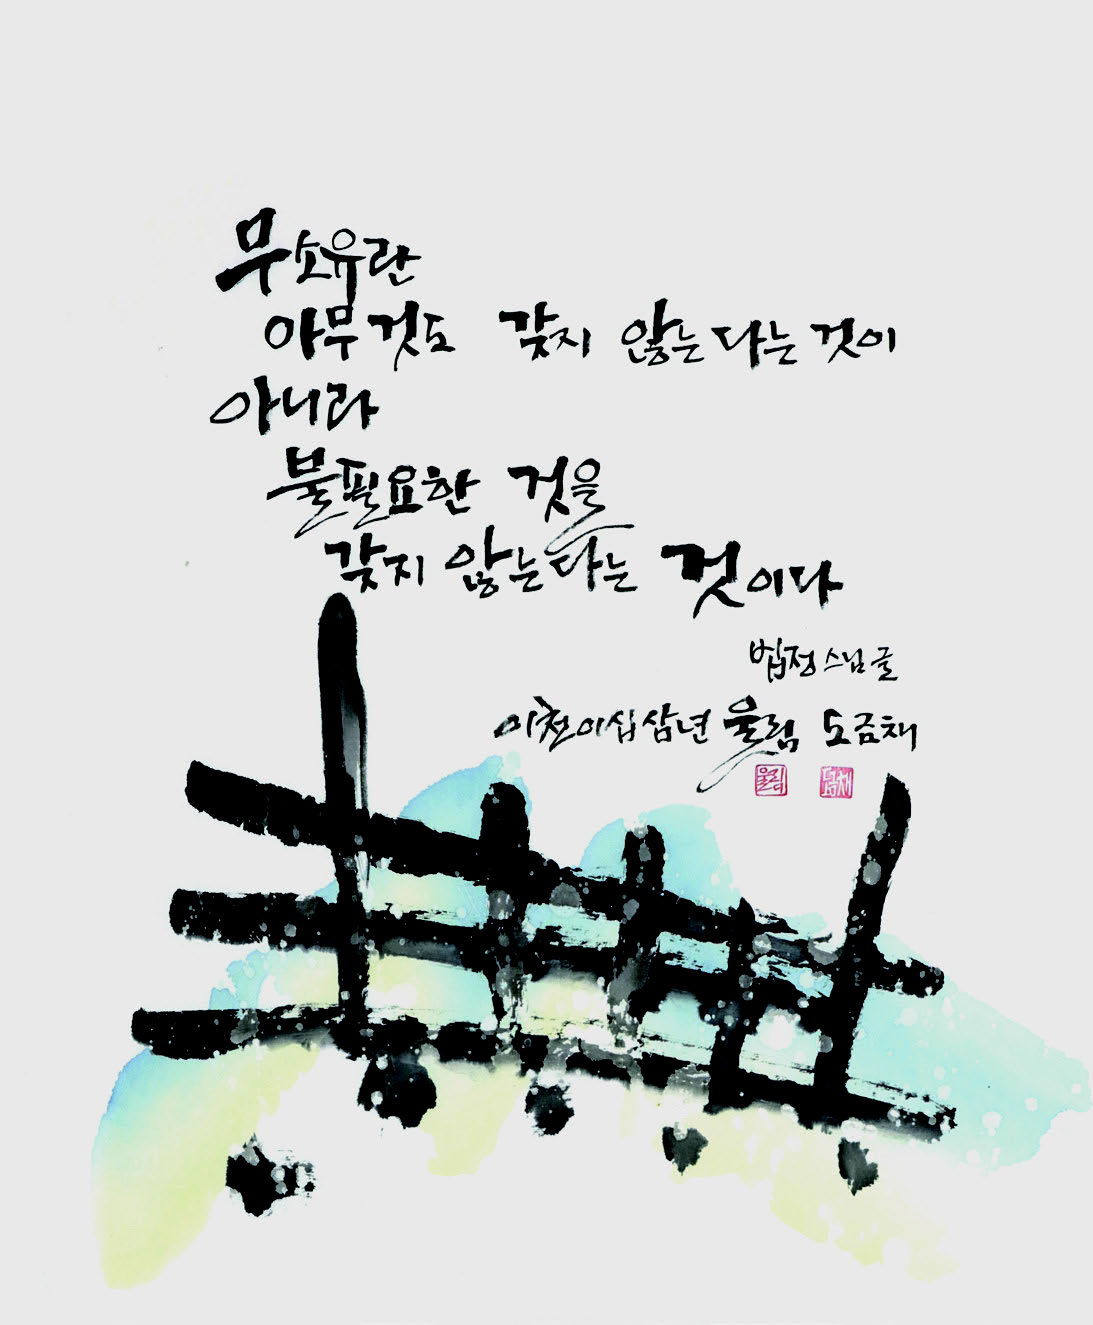 무소유란
아무것도 갖지 않는다는 것이
아니라
불필요한 것을
갖지 않는다는 것이다
법정스님글
이천이십삼년 울림 도금채
울림 도금채